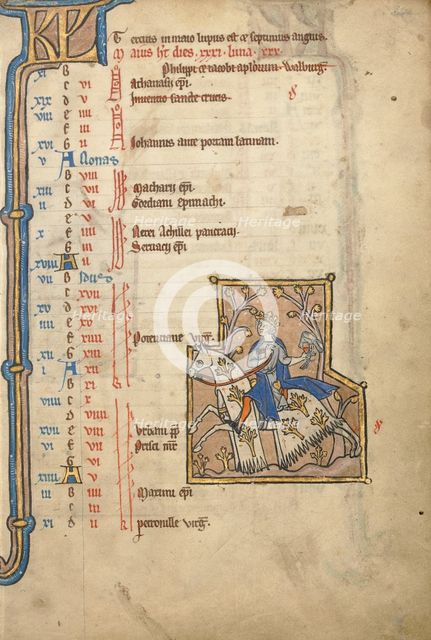 KL Tercius in maio lupus est & septimus anguis.
Maius ht dies .xxxi. luna .xxx.
xi B Philippi & iacobi aplorum. Walburg.
c vi Athanasii epi.
xix d v Inventio sancte crucis.
viii e iiii
f iii
xvi G ii Iohannis ante portam latinam.
v A Nonas
B viii
xiii c vii Macharii epi.
ii d vi Gordiani epimachi.
e v
x f iiii Nerei Achillei pancracii.
G iii Servacii epi.
xviii A ii
vii B Idus
c xvii
xv d xvi
iiii e xv
f xiiii Potentiane virg.
xii G xiii
i A xii
B xi
ix c x
d
e viii
xvii f vii Urbani pp.
vi G vi Prisci mr.
A v
xiiii B iiii Maximi epi.
iii c iii
xi d ii petronille virg.
Heritage
Heritage
Heritage
Heritage
Heritage
Heritage
Images
Images
Images
Images
Images
Images